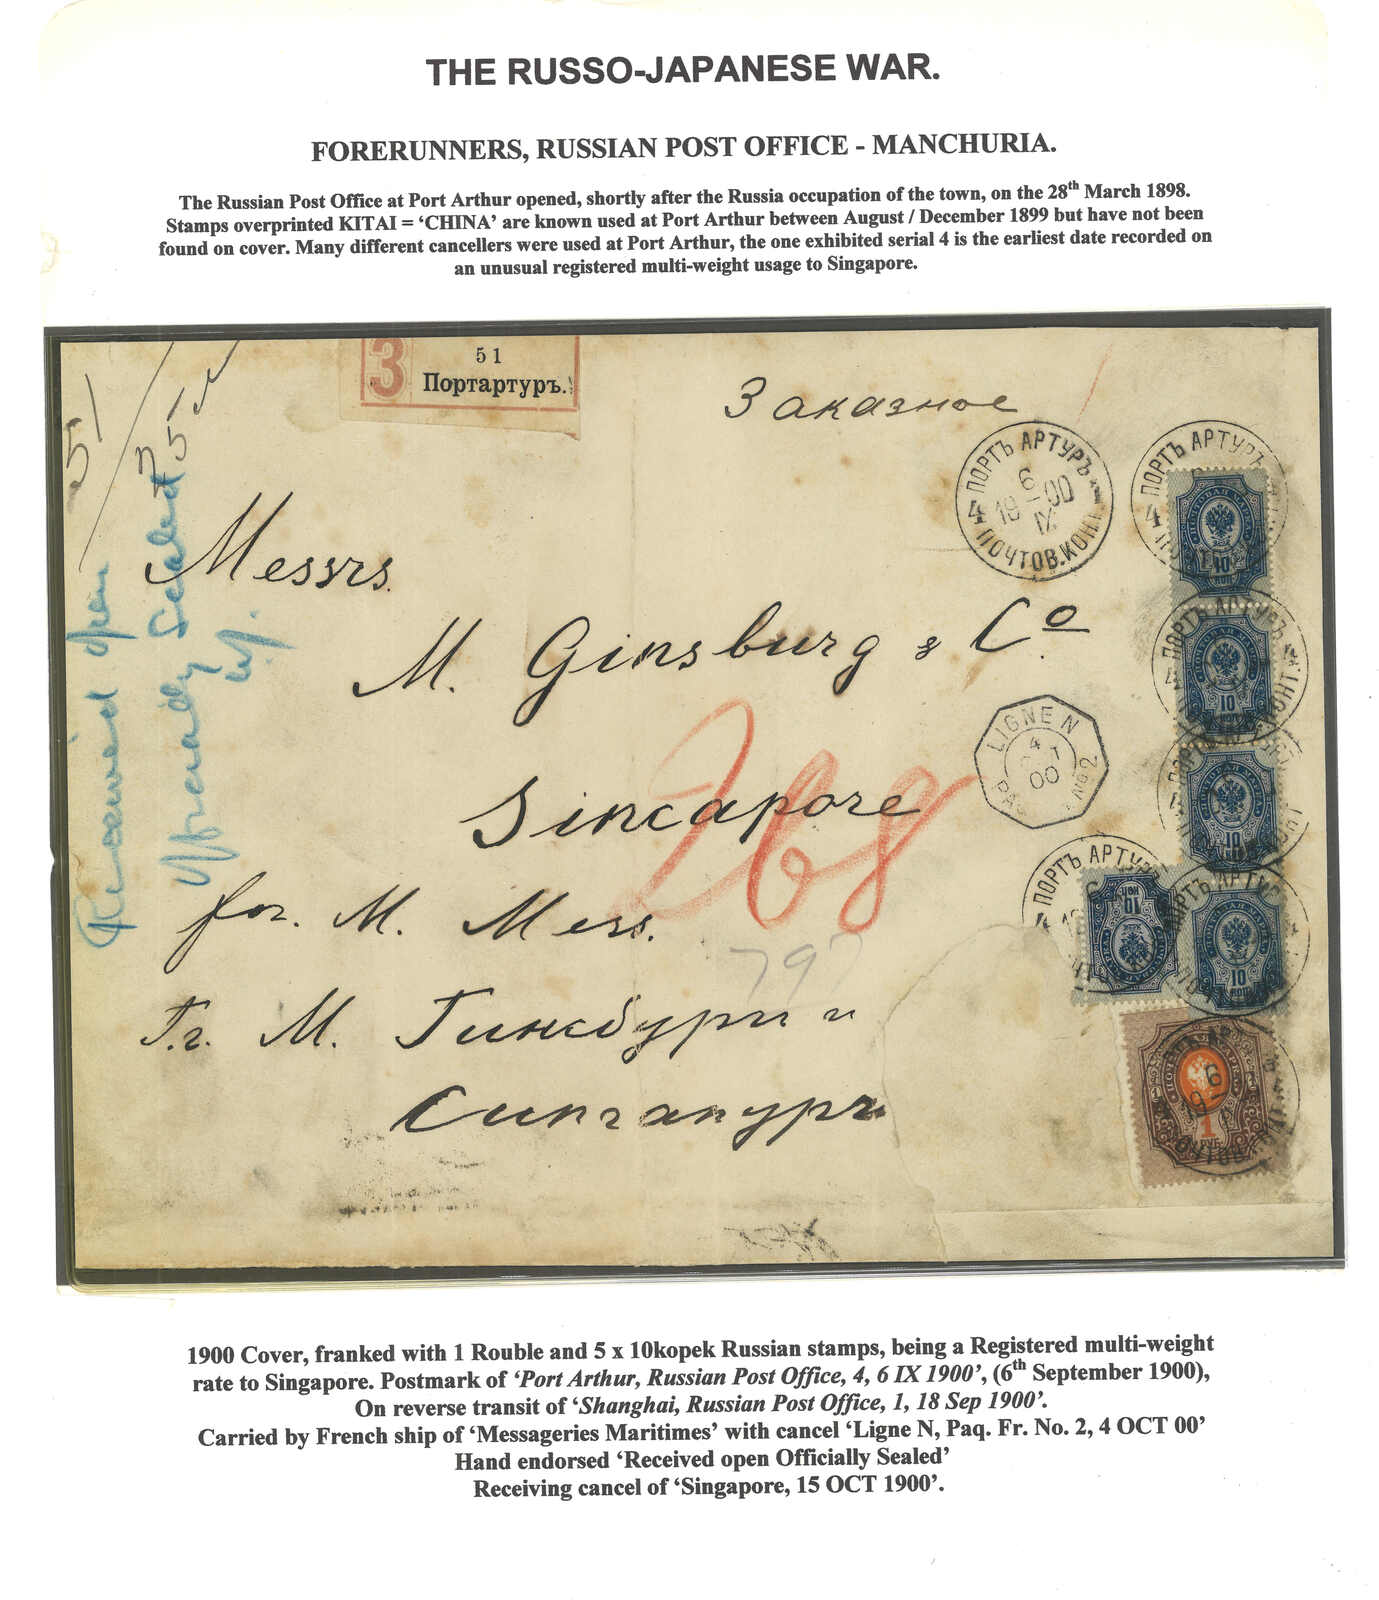 THE RUSSO-JAPANESE WAR.
FORERUNNERS, RUSSIAN POST OFFICE - MANCHURIA.
The Russian Post Office at Port Arthur opened, shortly after the Russia occupation of the town, on the 28th March 1898.
Stamps overprinted KITAI = ‘CHINA’ are known used at Port Arthur between August / December 1899 but have not been
found on cover. Many different cancellers were used at Port Arthur, the one exhibited serial 4 is the earliest date recorded on
an unusual registered multi-weight usage to Singapore.
З
51
Портартуръ.
Заказное
51
Received open
Officially Sealed
ПОРТЪ АРТУРЪ
6
19 00
IX
4
ПОЧТОВ.КОНТ.
ПОРТЪ АРТУРЪ
4
ПОЧТОВАЯ МАРКА
10
КОП
Messrs.
M. Ginsburg & Co
ПОРТЪ АРТУРЪ
4
КОНТ.
ПОЧТОВАЯ МАРКА
10
LIGNE N
4
00
PAQ
No 2
268
ПОЧТОВАЯ МАРКА
10
Sincapore
ПОРТЪ АРТУР
4
6
10
КОП
ПОРТЪ АРТУР
10
КОП
for. M. Mess.
797
Г.г. М. Гинсбургъ и
1
РУБ
6
Сингапуръ
1900 Cover, franked with 1 Rouble and 5 x 10kopek Russian stamps, being a Registered multi-weight
rate to Singapore. Postmark of ‘Port Arthur, Russian Post Office, 4, 6 IX 1900’, (6th September 1900),
On reverse transit of ‘Shanghai, Russian Post Office, 1, 18 Sep 1900’.
Carried by French ship of ‘Messageries Maritimes’ with cancel ‘Ligne N, Paq. Fr. No. 2, 4 OCT 00’
Hand endorsed ‘Received open Officially Sealed’
Receiving cancel of ‘Singapore, 15 OCT 1900’.